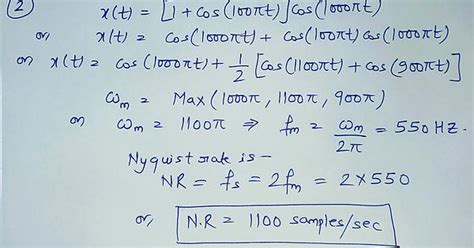 ② x(t) = [1 + cos(100πt)] cos(1000πt)
or, x(t) = cos(1000πt) + cos(100πt) cos(1000πt)
or, x(t) = cos(1000πt) + 1/2 [cos(1100πt) + cos(900πt)]
ωm = Max(1000π, 1100π, 900π)
or ωm = 1100π ⇒ fm = ωm/2π = 550 HZ.
Nyquist rate is –
NR = fs = 2fm = 2×550
or, N.R = 1100 samples/sec